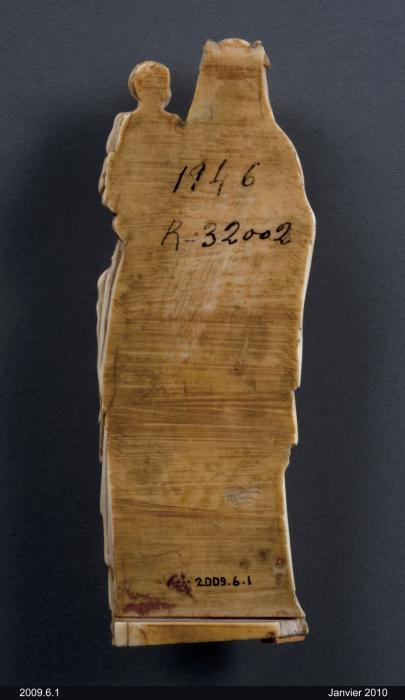 1946
R-32002
2009.6.1
2009.6.1
Janvier 2010